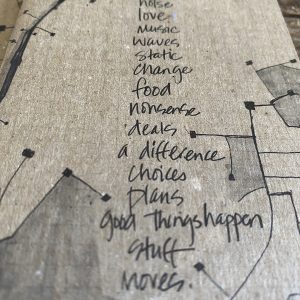 noise
love
music
waves
static
change
food
nonsense
deals
a difference
choices
plans
good things happen
stuff
moves.